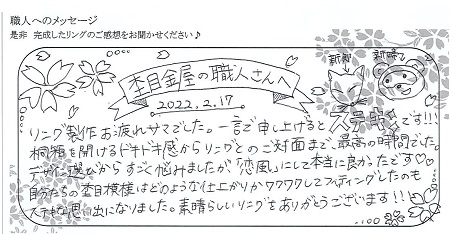 職人へのメッセージ
是非 完成したリングのご感想をお聞かせください♪
杢目金屋の職人さんへ
2022.2.17
新郎 新婦
リング製作お疲れサマでした。一言で申し上げるとステキです!!!
桐箱を開けるドキドキ感からリングとのご対面まで、最高の時間でした。
デザイン選びからすごく悩みましたが「恋風」にして本当に良かったです♡♡
自分たちの杢目模様はどのような仕上がりかワクワクしてフィティングしたのも
ステキな思い出になりました。素晴らしいリングをありがとうございます!!!